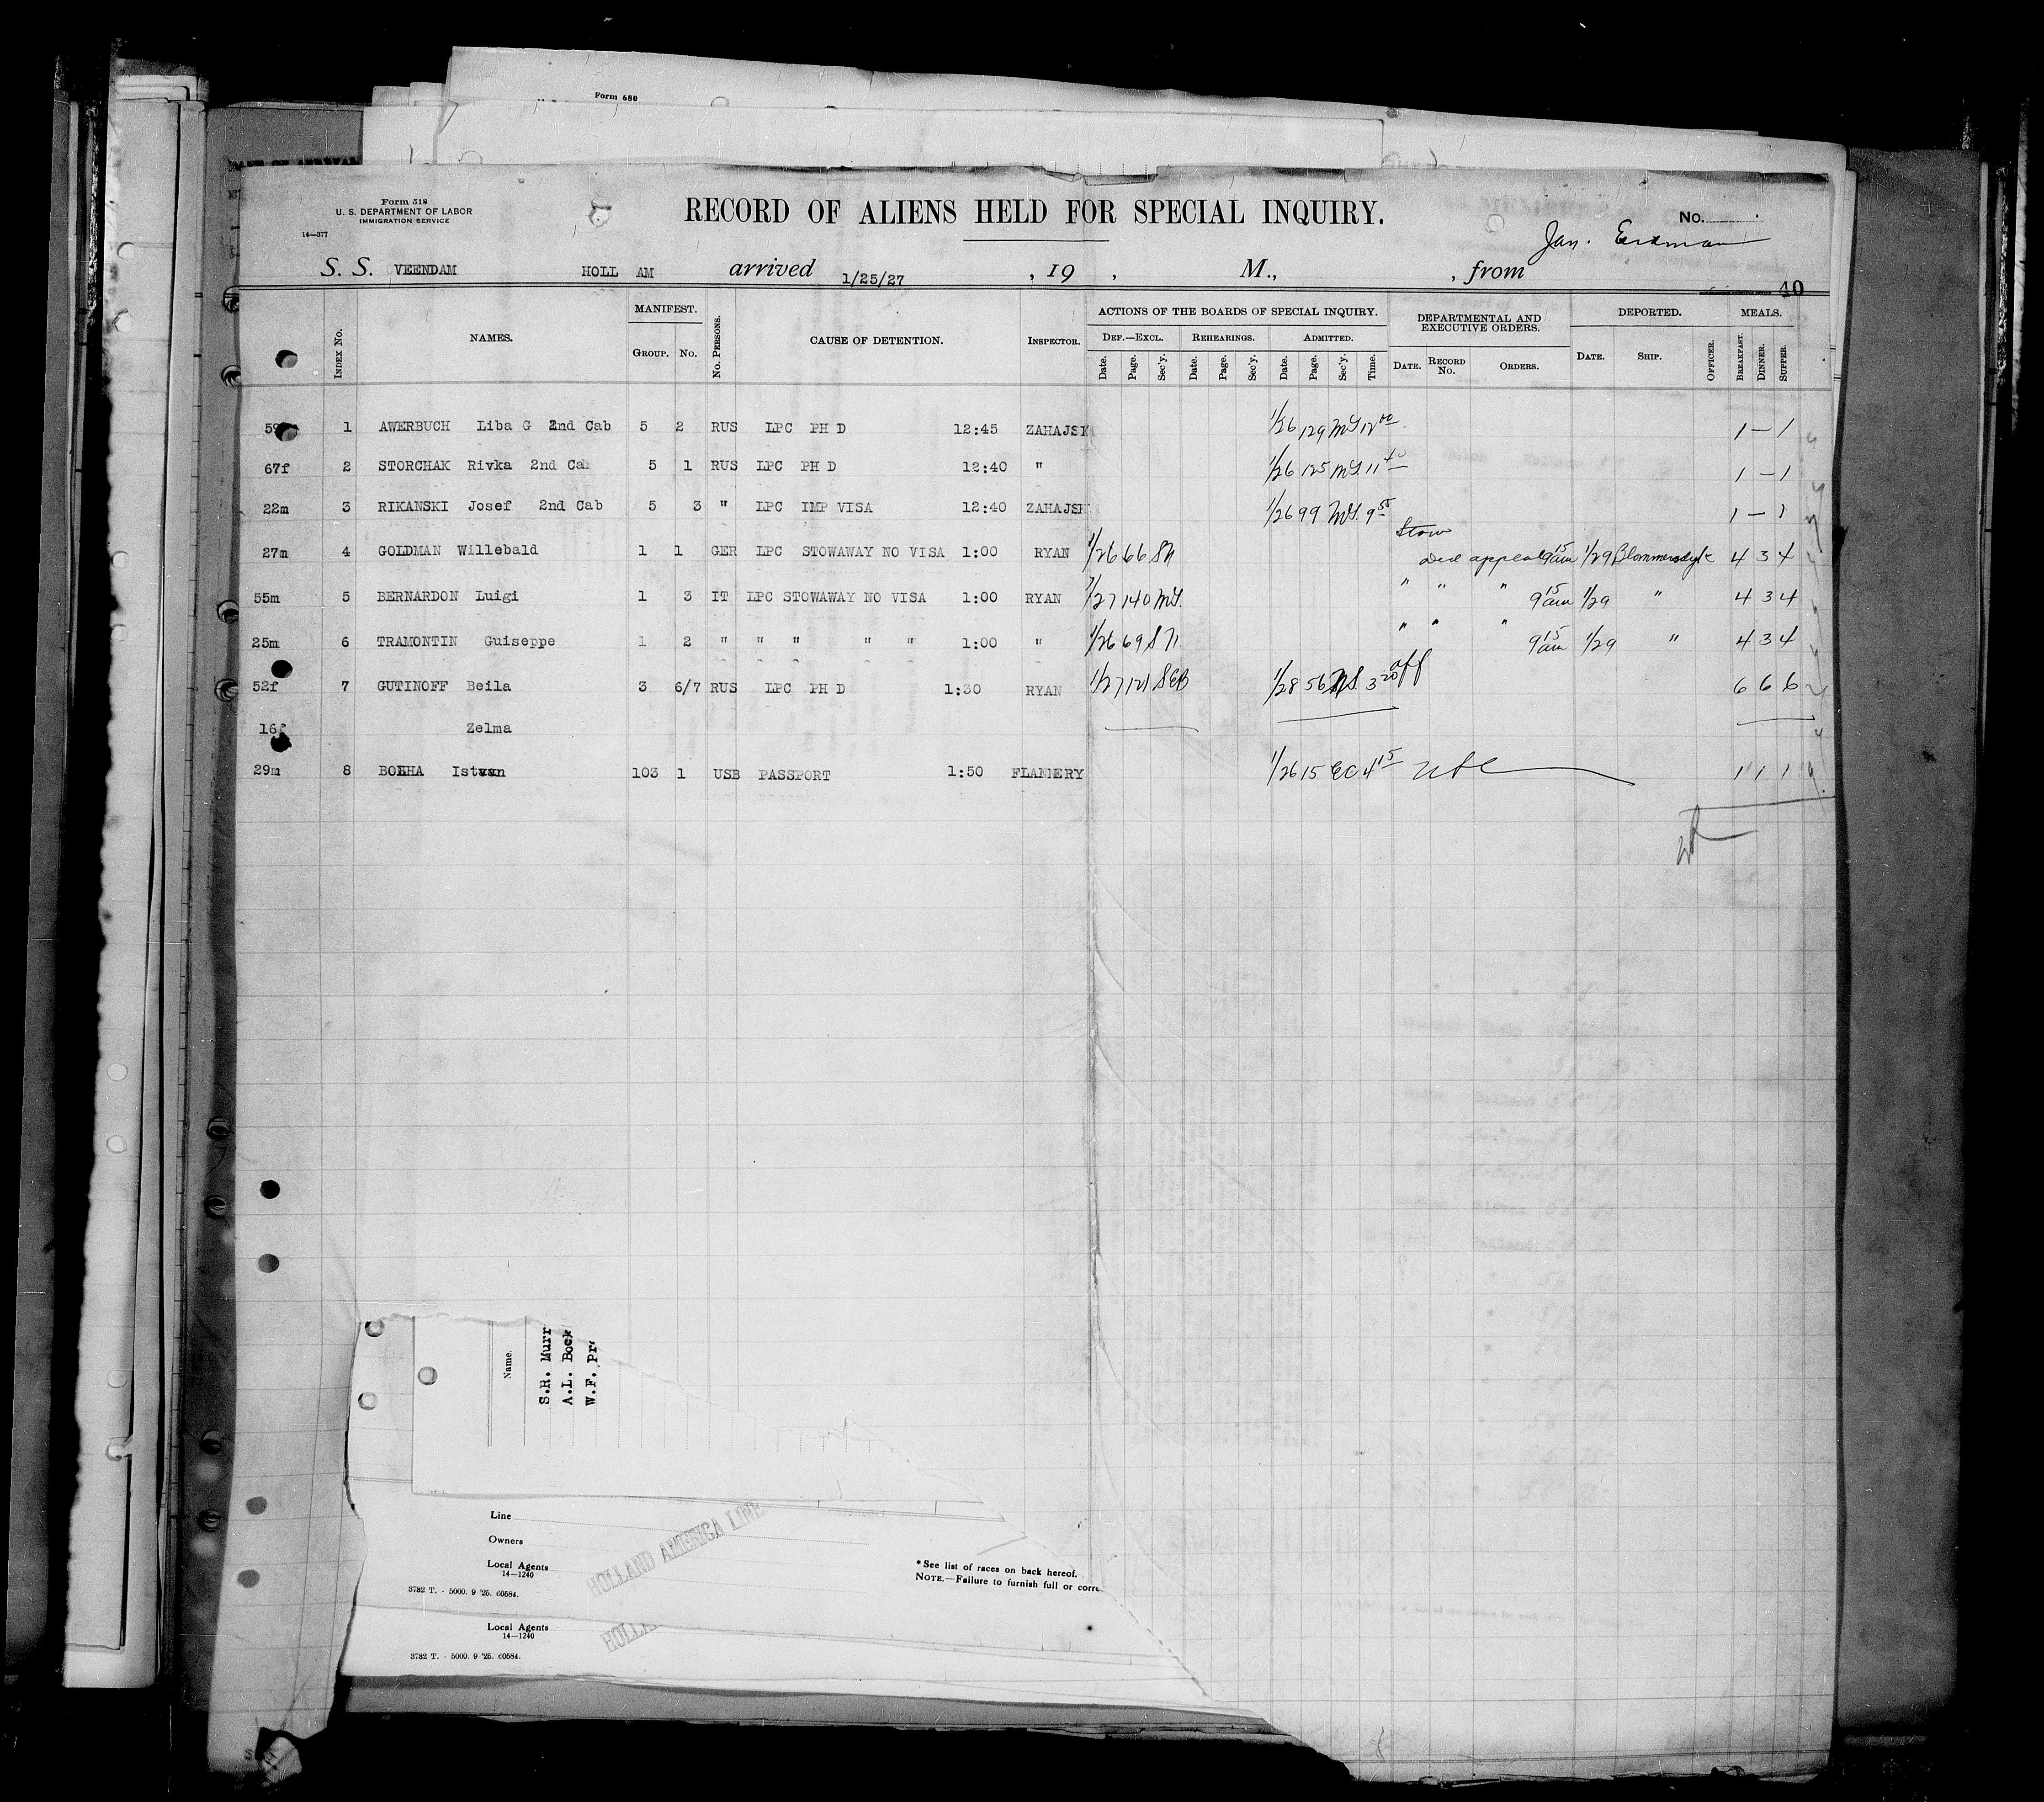 Form 680
Form 518
U. S. DEPARTMENT OF LABOR
IMMIGRATION SERVICE
14—377
RECORD OF ALIENS HELD FOR SPECIAL INQUIRY.
No.
Jan. Erdman
S. S. VEENDAM HOLL AM arrived 1/25/27 , 19 , M., , from
40
Index No. NAMES. MANIFEST. Group. No. No. Persons. CAUSE OF DETENTION. Inspector. ACTIONS OF THE BOARDS OF SPECIAL INQUIRY. Def.—Excl. Date. Page. Sec'y. Rehearings. Date. Page. Sec'y. Admitted. Date. Page. Sec'y. Time. DEPARTMENTAL AND EXECUTIVE ORDERS. Date. Record No. Orders. DEPORTED. Date. Ship. Officer. MEALS. Breakfast. Dinner. Supper.
1 AWERBUCH Liba G 2nd Cab 5 2 RUS LPC PH D 12:45 ZAHAJSK 1/26 129 MG 12 00 1 — 1
67f 2 STORCHAK Rivka 2nd Cab 5 1 RUS LPC PH D 12:40 " 1/26 125 MG 11 40 1 — 1
22m 3 RIKANSKI Josef 2nd Cab 5 3 " LPC IMP VISA 12:40 ZAHAJSK 1/26 99 MG 9 55 1 — 1
Stow
27m 4 GOLDMAN Willebald 1 1 GER LPC STOWAWAY NO VISA 1:00 RYAN 1/26 66 SN Did appeal 9 15 am 1/29 Blommersdyk 4 3 4
55m 5 BERNARDON Luigi 1 3 IT LPC STOWAWAY NO VISA 1:00 RYAN 1/27 140 MG " " " 9 15 am 1/29 " 4 3 4
25m 6 TRAMONTIN Guiseppe 1 2 " " " " " 1:00 " 1/26 69 SN " " " 9 15 am 1/29 " 4 3 4
52f 7 GUTINOFF Beila 3 6/7 RUS LPC PH D 1:30 RYAN 1/27 121 SEB 1/28 56 NS 3 20 aff 6 6 6
16f Zelma
29m 8 BOKHA Istvan 103 1 USB PASSPORT 1:50 FLANNERY 1/26 15 EC 4 15 1 1 1
Name.
S.R. Murr
A.L. Bock
W.F. Pr
Line
Owners
HOLLAND AMERICA LINE
Local Agents
14—1240
3782 T. - 5000. 9 '25. 60584.
* See list of races on back hereof.
NOTE.—Failure to furnish full or corre
Local Agents
14—1240
HOLLA
3782 T. - 5000. 9 '25. 60584.